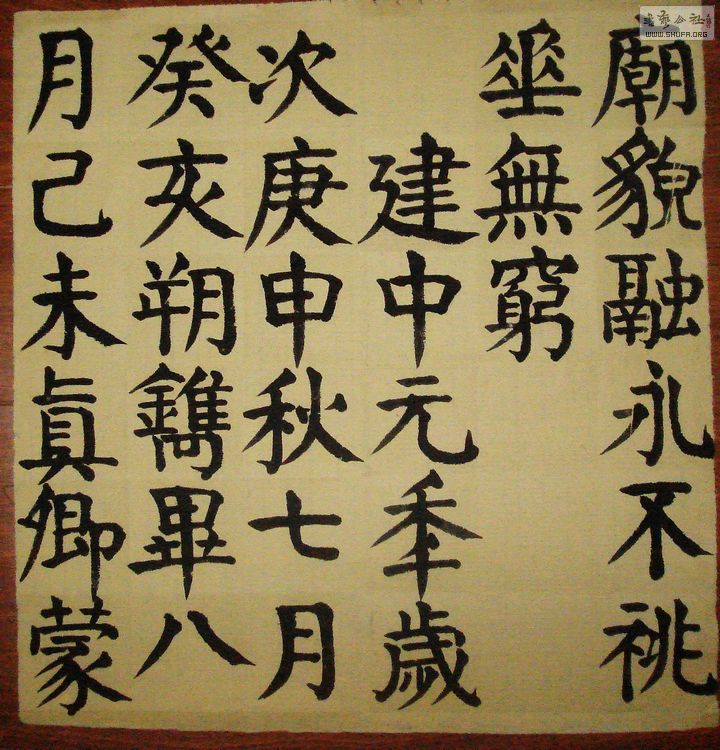 廟貌融永不祧
埀無窮
建中元秊歲
次庚申秋七月
癸亥朔鐫畢八
月己未眞卿蒙
書藝公社
WWW.SHUFA.ORG